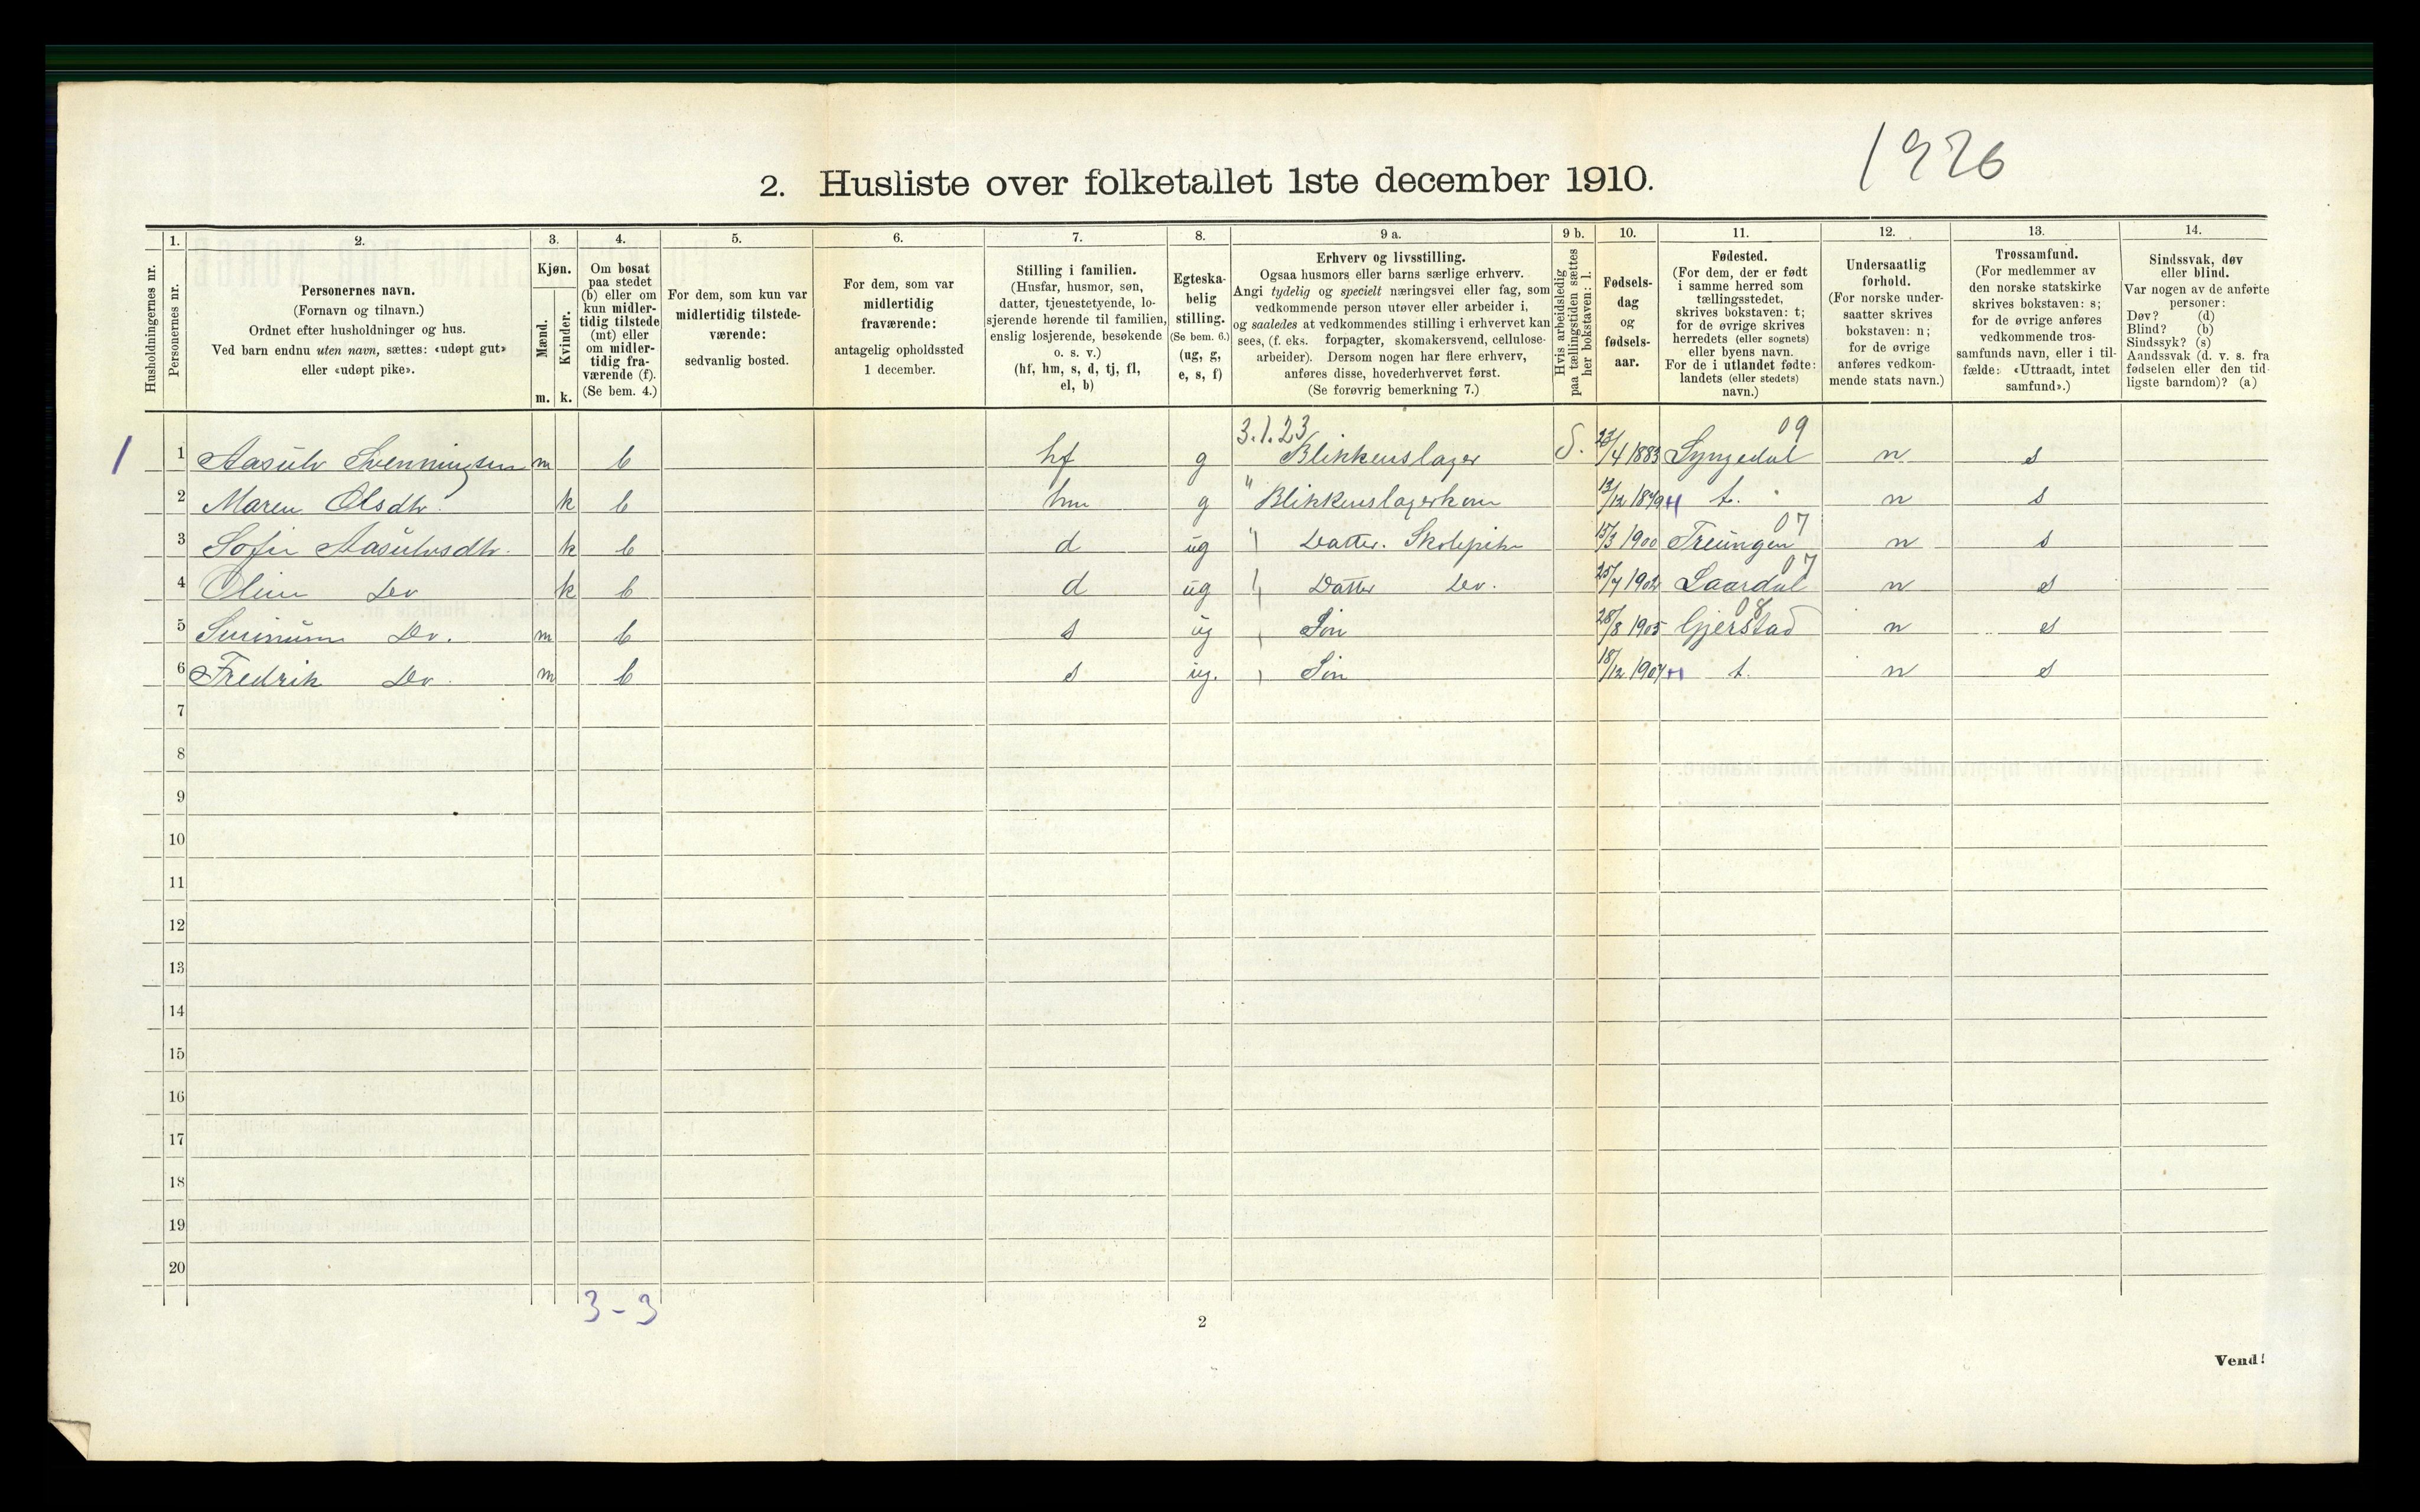 1926
2. Husliste over folketallet 1ste december 1910.
Husholdningernes nr.
1. Personernes nr.
2. Personernes navn. (Fornavn og tilnavn.) Ordnet efter husholdninger og hus. Ved barn endnu uten navn, sættes: «udøpt gut» eller «udøpt pike».
3. Kjøn. Mænd. m. Kvinder. k.
4. Om bosat paa stedet (b) eller om kun midlertidig tilstede (mt) eller om midlertidig fraværende (f). (Se bem. 4.)
5. For dem, som kun var midlertidig tilstedeværende: sedvanlig bosted.
6. For dem, som var midlertidig fraværende: antagelig opholdssted 1 december.
7. Stilling i familien. (Husfar, husmor, søn, datter, tjenestetyende, losjerende hørende til familien, enslig losjerende, besøkende o. s. v.) (hf, hm, s, d, tj, fl, el, b)
8. Egteskabelig stilling. (Se bem. 6.) (ug, g, e, s, f)
9 a. Erhverv og livsstilling. Ogsaa husmors eller barns særlige erhverv. Angi tydelig og specielt næringsvei eller fag, som vedkommende person utøver eller arbeider i, og saaledes at vedkommendes stilling i erhvervet kan sees, (f. eks. forpagter, skomakersvend, cellulosearbeider). Dersom nogen har flere erhverv, anføres disse, hovederhvervet først. (Se forøvrig bemerkning 7.)
9 b. Hvis arbeidsledig paa tællingstiden sættes her bokstaven: l.
10. Fødselsdag og fødselsaar.
11. Fødested. (For dem, der er født i samme herred som tællingsstedet, skrives bokstaven: t; for de øvrige skrives herredets (eller sognets) eller byens navn. For de i utlandet fødte: landets (eller stedets) navn.)
12. Undersaatlig forhold. (For norske undersaatter skrives bokstaven: n; for de øvrige anføres vedkommende stats navn.)
13. Trossamfund. (For medlemmer av den norske statskirke skrives bokstaven: s; for de øvrige anføres vedkommende trossamfunds navn, eller i tilfælde: «Uttraadt, intet samfund».)
14. Sindssvak, døv eller blind. Var nogen av de anførte personer: Døv? (d) Blind? (b) Sindssyk? (s) Aandssvak (d. v. s. fra fødselen eller den tidligste barndom)? (a)
3.1.23 09
1 1 Aasulv Svenningsen m b hf g Blikkenslager S. 23/4 1883 n s
2 Maren Olsdtr. k b hm g " Blikkenslagerkone 13/12 t. n s
07
3 Sofie Aasulvsdtr. k b d ug " Datter. Skolepike 15/3 1900 Treungen n s
07
4 Do k b d ug " Datter Do. 25/7 1902 Laardal n s
08
5 Do. m b s ug Søn 28/8 1905 Gjerstad n s
6 Fredrik Do. m b s ug. Søn 18/12 1907 t. n s
7
8
9
10
11
12
13
14
15
16
17
18
19
20
3-3
2
Vend!